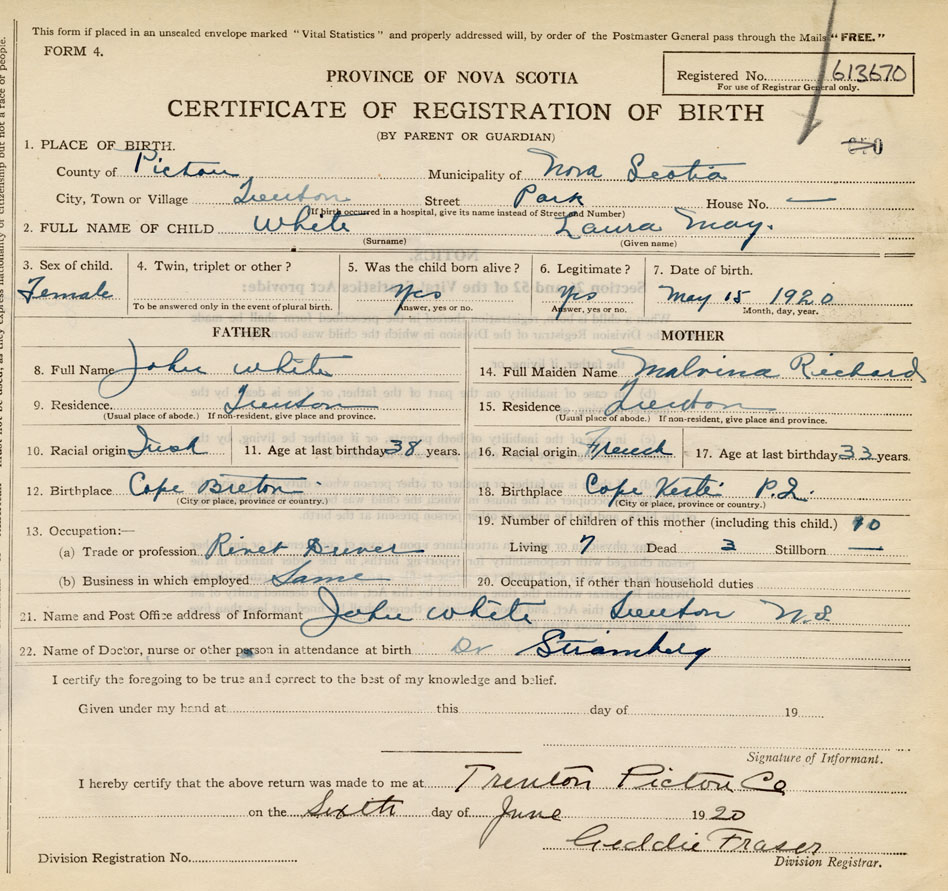 This form if placed in an unsealed envelope marked "Vital Statistics" and properly addressed will, by order of the Postmaster General pass through the Mails "FREE."
FORM 4.
PROVINCE OF NOVA SCOTIA
Registered No. 613670
For use of Registrar General only.
CERTIFICATE OF REGISTRATION OF BIRTH
(BY PARENT OR GUARDIAN)
1. PLACE OF BIRTH.
County of Pictou Municipality of Nova Scotia
City, Town or Village Trenton Street Park House No. —
(If birth occurred in a hospital, give its name instead of Street and Number)
2. FULL NAME OF CHILD White Laura May.
(Surname) (Given name)
3. Sex of child. 4. Twin, triplet or other? 5. Was the child born alive? 6. Legitimate? 7. Date of birth.
Female Yes Yes May 15 1920
To be answered only in the event of plural birth. Answer, yes or no. Answer, yes or no. Month, day, year.
FATHER MOTHER
8. Full Name John White 14. Full Maiden Name Malvina Richards
9. Residence Trenton 15. Residence Trenton
(Usual place of abode.) If non-resident, give place and province. (Usual place of abode.) If non-resident, give place and province.
10. Racial origin Irish 11. Age at last birthday 38 years. 16. Racial origin French 17. Age at last birthday 33 years.
12. Birthplace Cape Breton 18. Birthplace Cape P.I.
(City or place, province or country.) (City or place, province or country.)
13. Occupation:— 19. Number of children of this mother (including this child.) 10
(a) Trade or profession Rivet Driver Living 7 Dead 3 Stillborn —
(b) Business in which employed Same 20. Occupation, if other than household duties
21. Name and Post Office address of Informant John White Trenton N.S
22. Name of Doctor, nurse or other person in attendance at birth Dr Stramberg
I certify the foregoing to be true and correct to the best of my knowledge and belief.
Given under my hand at this day of 19
Signature of Informant.
I hereby certify that the above return was made to me at Trenton Pictou Co
on the Sixth day of June 1920
Geddie Fraser
Division Registration No. Division Registrar.